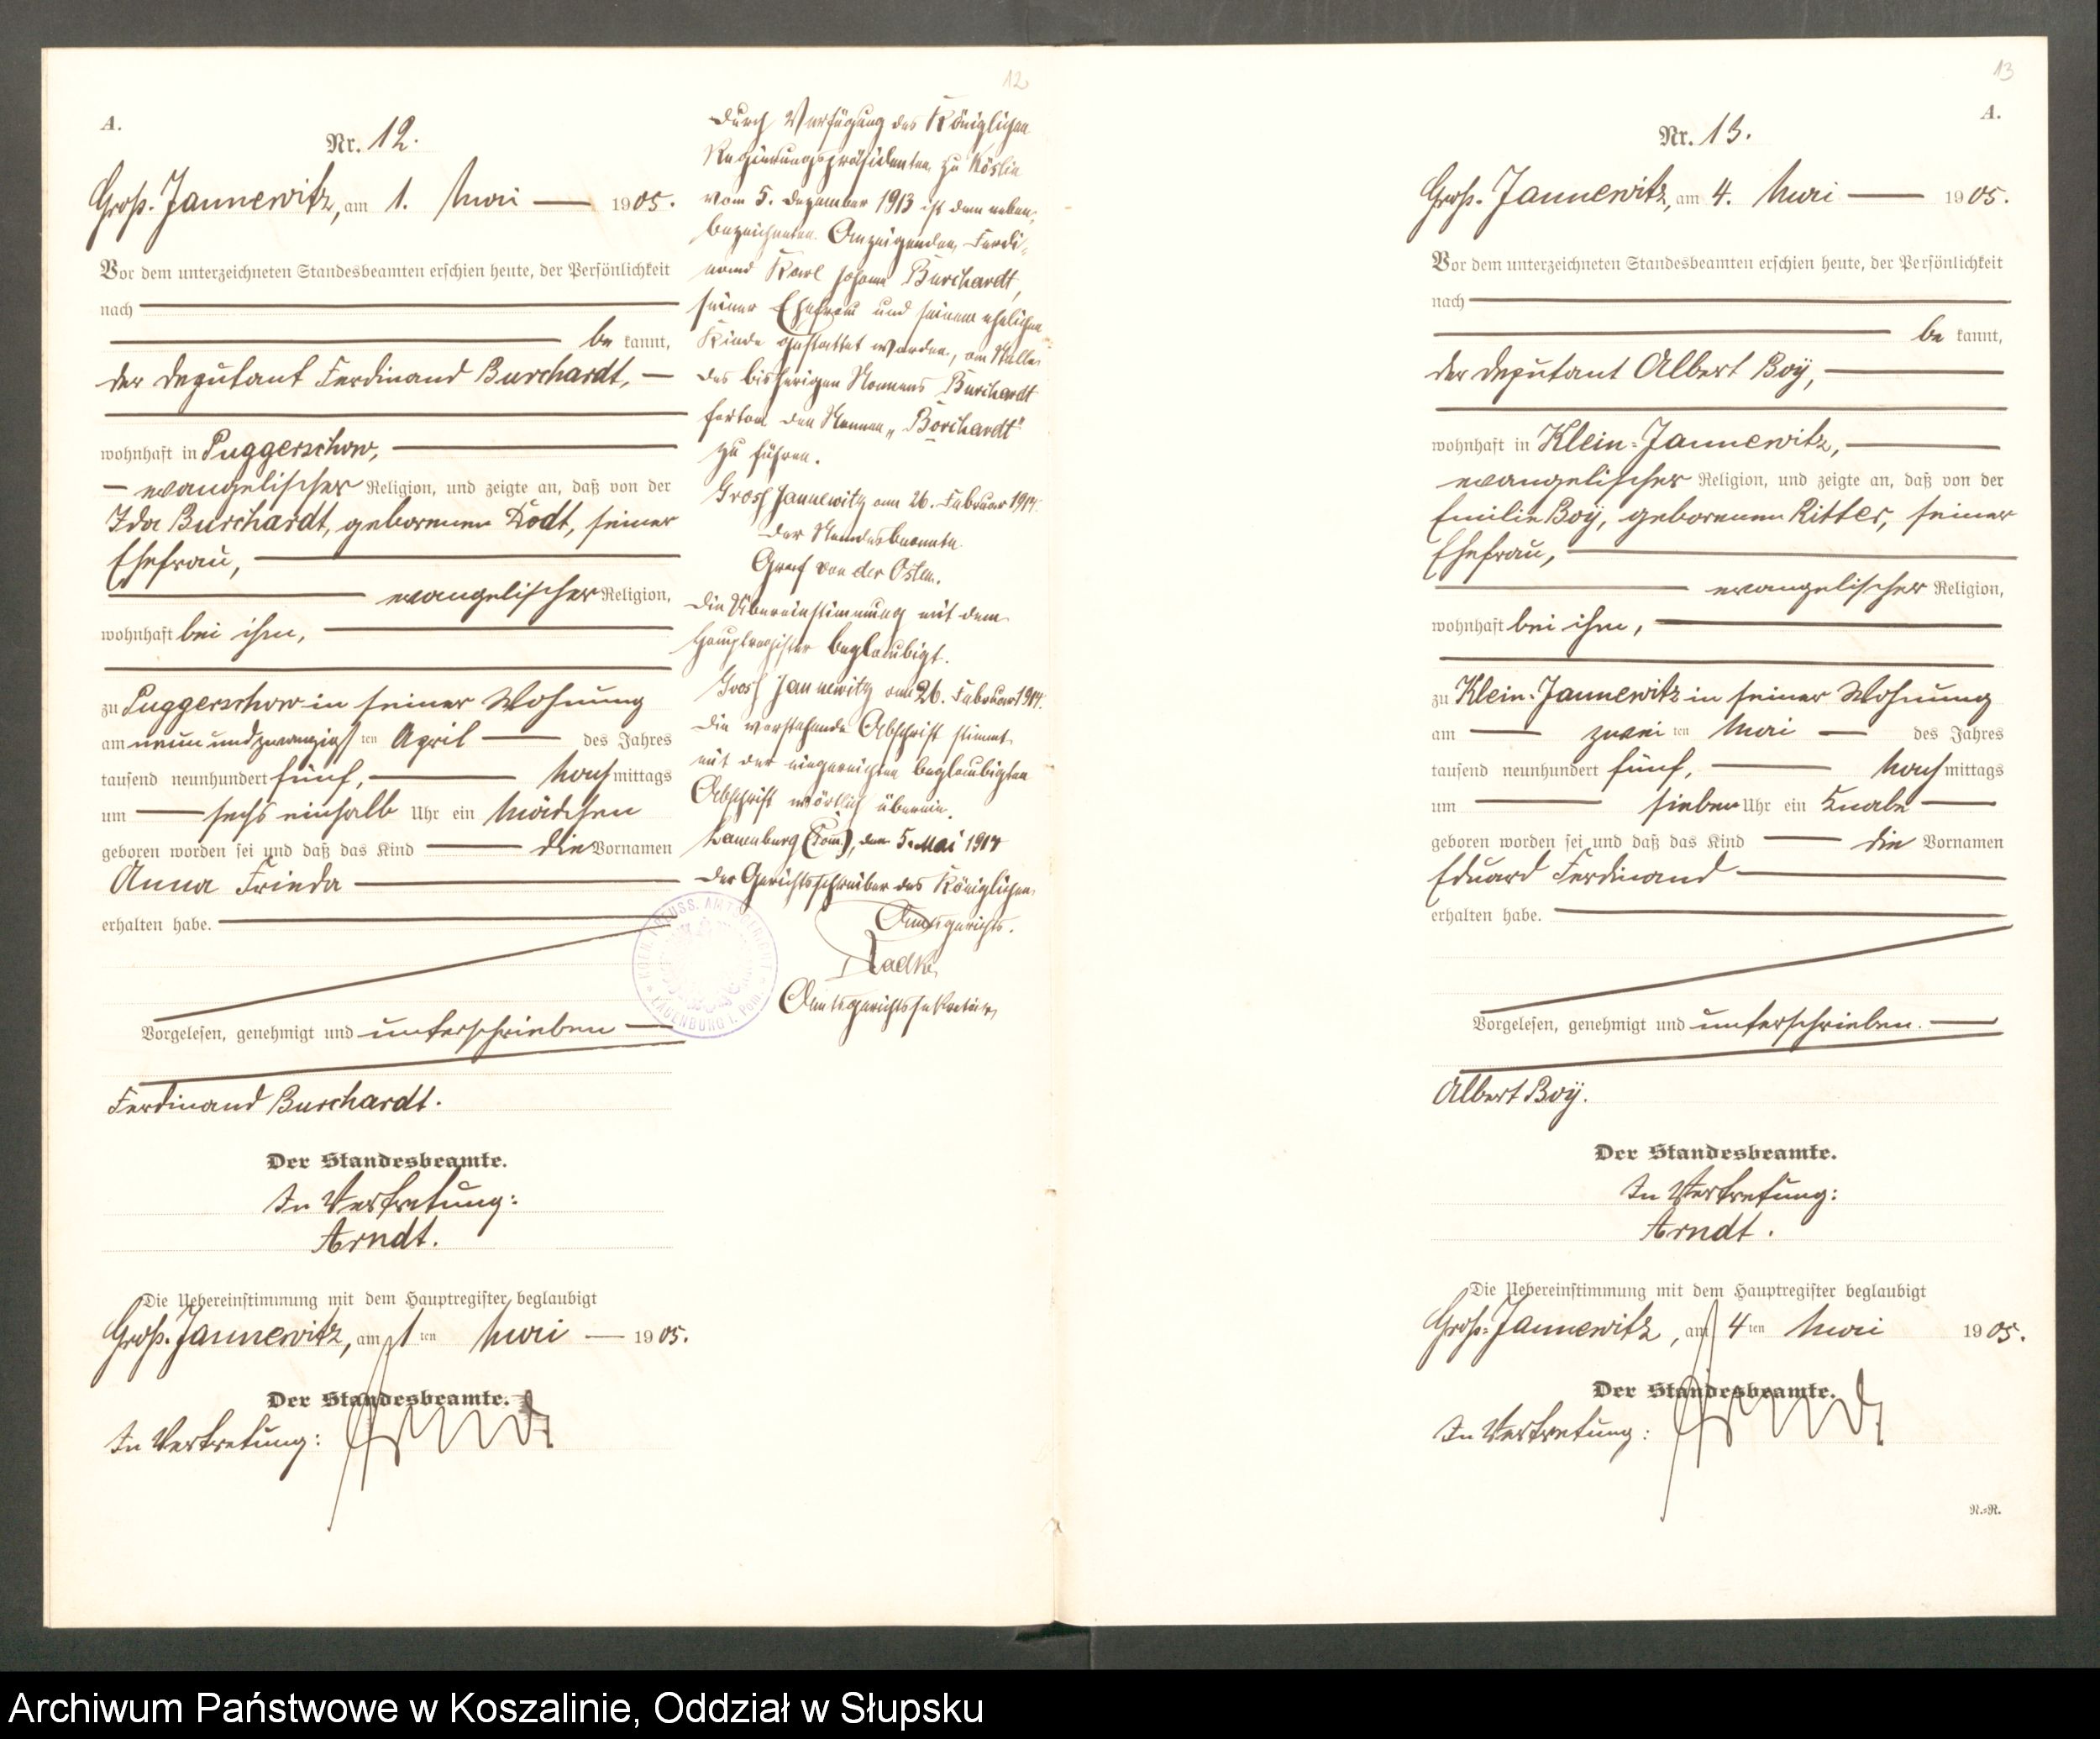 12
A.
Nr. 12.
Groß-Jannewitz, am 1. Mai 1905.
Vor dem unterzeichneten Standesbeamten erschien heute, der Persönlichkeit
nach
be kannt,
der Deputant Ferdinand Burchardt,
wohnhaft in Puggerschow,
evangelischer Religion, und zeigte an, daß von der
Ida Burchardt, geborenen Dodt, seiner
Ehefrau,
evangelischer Religion,
wohnhaft bei ihm,
zu Puggerschow in seiner Wohnung
am neunundzwanzigsten April des Jahres
tausend neunhundert fünf, Nachmittags
um sechs einhalb Uhr ein Mädchen
geboren worden sei und daß das Kind die Vornamen
Anna Frieda
erhalten habe.
Vorgelesen, genehmigt und unterschrieben
Ferdinand Burchardt.
Der Standesbeamte.
In Vertretung:
Arndt.
Die Uebereinstimmung mit dem Hauptregister beglaubigt
Groß-Jannewitz, am 1ten Mai 1905.
Der Standesbeamte.
In Vertretung: Arndt
Durch Verfügung des Königlichen
Regierungspräsidenten zu Köslin
vom 5. Dezember 1913 ist dem neben-
bezeichneten Anzeigenden, Ferdi-
nand Karl Johann Burchardt,
seiner Ehefrau und seinem ehelichen
Kinde gestattet worden, an Stelle
des bisherigen Namens Burchardt
fortan den Namen „Borchardt"
zu führen.
Gross Jannewitz am 26. Februar 1914.
Der Standesbeamte
Graf von der Osten.
Die Übereinstimmung mit dem
Hauptregister beglaubigt.
Gross Jannewitz am 26. Februar 1914.
Die vorstehende Abschrift stimmt
mit der eingereichten beglaubigten
Abschrift wörtlich überein.
Lauenburg (Pom.), den 5. Mai 1914
Der Gerichtsschreiber des Königlichen
Amtsgerichts.
Radke
Amtsgerichtssekretär
KÖN. PREUSS. AMTSGERICHT
LAUENBURG i. Pom.
13
A.
Nr. 13.
Groß-Jannewitz, am 4. Mai 1905.
Vor dem unterzeichneten Standesbeamten erschien heute, der Persönlichkeit
nach
be kannt,
der Deputant Albert Boÿ,
wohnhaft in Klein-Jannewitz,
evangelischer Religion, und zeigte an, daß von der
Emilie Boÿ, geborenen Ritter, seiner
Ehefrau,
evangelischer Religion,
wohnhaft bei ihm,
zu Klein-Jannewitz in seiner Wohnung
am zweiten Mai des Jahres
tausend neunhundert fünf, Nachmittags
um sieben Uhr ein Knabe
geboren worden sei und daß das Kind die Vornamen
Eduard Ferdinand
erhalten habe.
Vorgelesen, genehmigt und unterschrieben.
Albert Boÿ.
Der Standesbeamte.
In Vertretung:
Arndt.
Die Uebereinstimmung mit dem Hauptregister beglaubigt
Groß-Jannewitz, am 4ten Mai 1905.
Der Standesbeamte.
In Vertretung: Arndt
R.=R.
Archiwum Państwowe w Koszalinie, Oddział w Słupsku